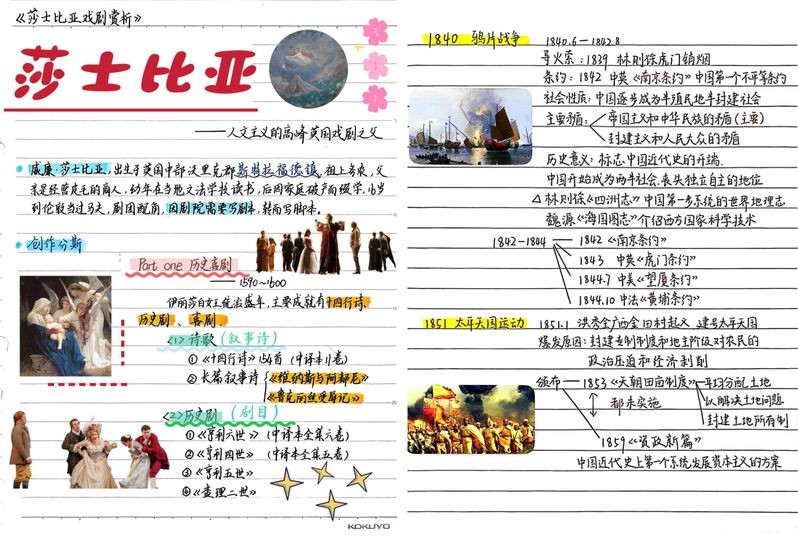 《莎士比亚戏剧赏析》
莎士比亚
——人文主义的高峰英国戏剧之父
威廉·莎士比亚,出生于英国中部沃里克郡斯特拉福德镇,祖上务农,父
亲是经营皮毛的商人,幼年在当地文法学校读书,后因家庭破产而缀学,16岁
到伦敦当过马夫,剧团配角,因剧院需要写剧本,转而写脚本。
创作分斯
Part one 历史喜剧
——1590~1600
伊丽莎白女王统治盛年,主要成就有十四行诗、
历史剧、喜剧.
<1>诗歌(叙事诗)
①《十四行诗》154首 (中译本11卷)
② 长篇叙事诗 《维纳斯与阿都尼》
《鲁克丽丝受辱记》
<2>历史剧(剧目)
①《亨利六世》 (中译本全集六卷)
②《亨利四世》 (中译本全集五卷)
③《亨利五世》
④《查理二世》
KOKUYO
1840 鸦片战争 1840.6—1842.8
导火索:1839 林则徐虎门销烟
条约:1842 中英《南京条约》中国第一个不平等条约
社会性质:中国逐步成为半殖民地半封建社会
主要矛盾 帝国主义和中华民族的矛盾(主要)
封建主义和人民大众的矛盾
历史意义:标志中国近代史的开端,
中国开始成为两半社会,丧失独立自主的地位
△ 林则徐《四洲志》中国第一步系统的世界地理志
魏源《海国图志》介绍西方国家科学技术
1842-1844 1842《南京条约》
1843 中英《虎门条约》
1844.7 中美《望厦条约》
1844.10 中法《黄埔条约》
1851 太平天国运动 1851.1 洪秀全广西金田村起义 建号太平天国
爆发原因:封建专制制度和地主阶级对农民的
政治压迫和经济剥削
颁布 1853《天朝田亩制度》—平均分配土地
都未实施 以解决土地问题
封建土地所有制
1859《资政新篇》
中国近代史上第一个系统发展资本主义的方案